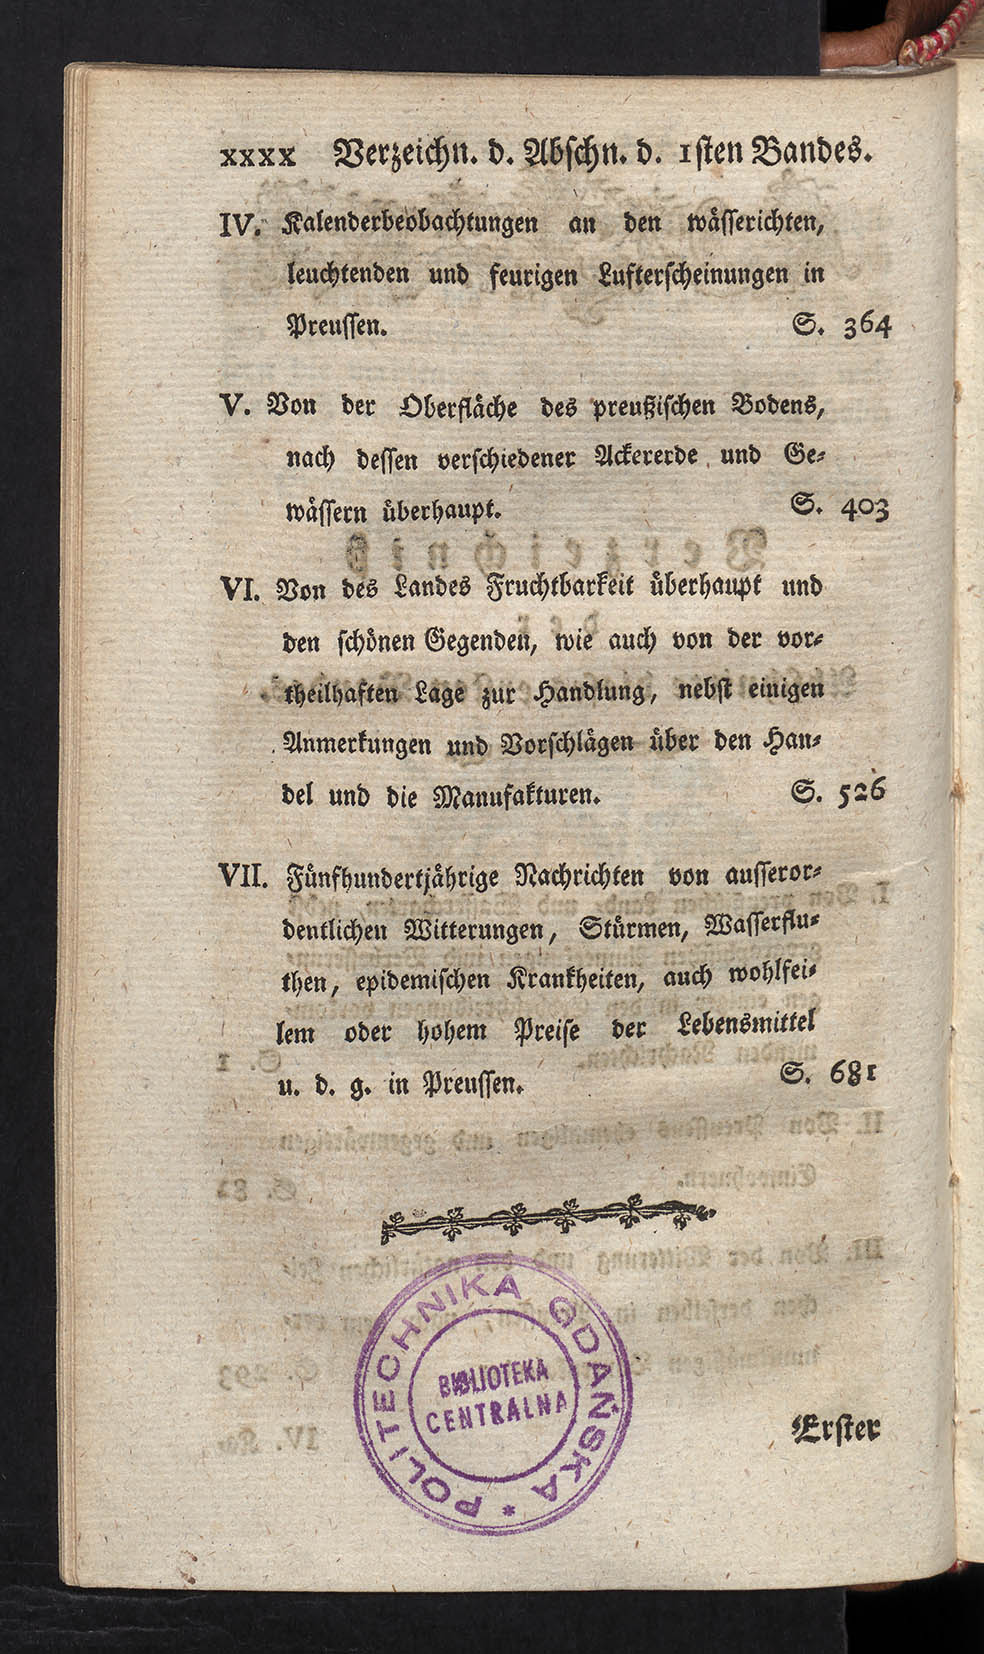 xxxx Verzeichn. d. Abschn. d. 1sten Bandes.
IV. Kalenderbeobachtungen an den wässerichten,
leuchtenden und feurigen Lufterscheinungen in
Preussen. S. 364
V. Von der Oberfläche des preußischen Bodens,
nach dessen verschiedener Ackererde und Ge-
wässern überhaupt. S. 403
VI. Von des Landes Fruchtbarkeit überhaupt und
den schönen Gegenden, wie auch von der vor-
theilhaften Lage zur Handlung, nebst einigen
Anmerkungen und Vorschlägen über den Han-
del und die Manufakturen. S. 526
VII. Fünfhundertjährige Nachrichten von ausseror-
dentlichen Witterungen, Stürmen, Wasserflu-
then, epidemischen Krankheiten, auch wohlfei-
lem oder hohem Preise der Lebensmittel
u. d. g. in Preussen. S. 681
POLITECHNIKA GDAŃSKA *
BIBLIOTEKA
CENTRALNA
Erster